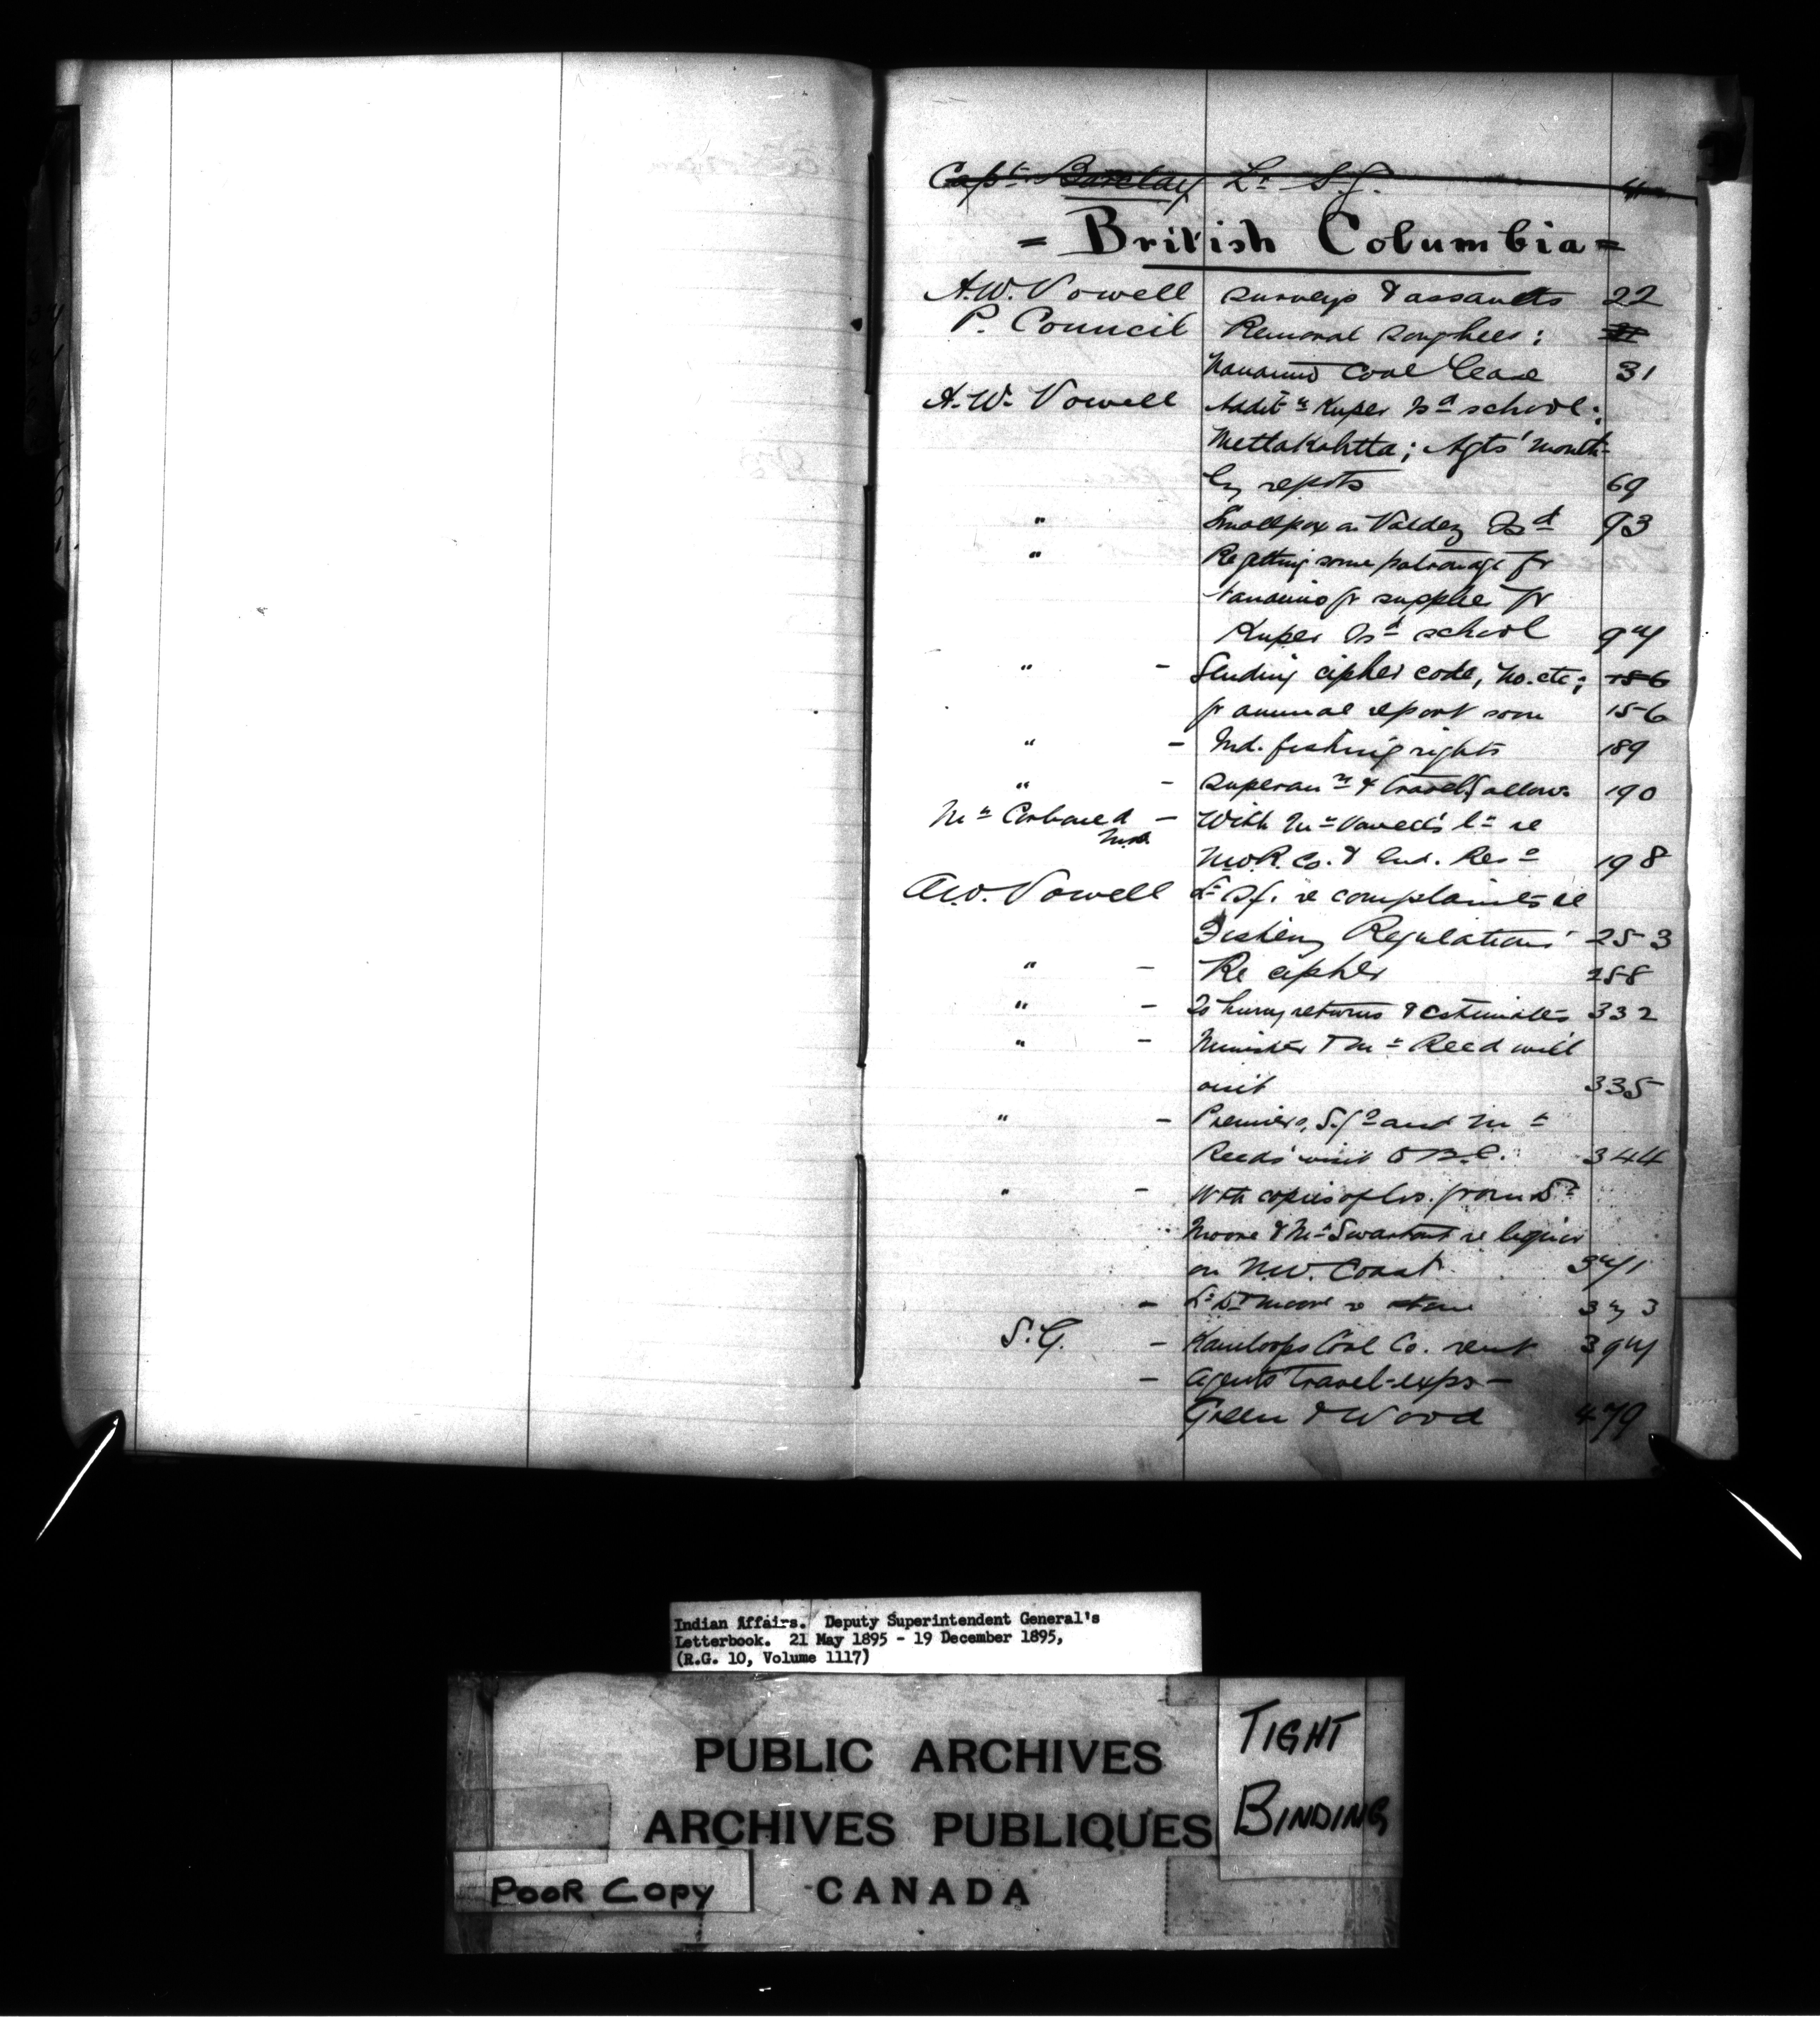 Capt. Barclay Lr S.G.
= British Columbia =
A.W. Vowell surveys & assaults 22
P. Council Removal Songhees;
Nanaimo Coal lease 31
A.W. Vowell Addit n Kuper Isd school;
Metlakahtta; Agts' month-
ly repts 69
" Smallpox on Valdez Isd 93
" Re getting some patronage fr
Nanaimo fr supplies fr
Kuper Isd school 94
" - Sending cipher code, no. etc; 156
fr annual report soon 156
" - Ind. fishing rights 189
" - superan n & travelg allow. 190
Mr - With Mr Vowell's lr re
N.W.R. Co. & Ind. Res 198
A.W. Vowell Lr S.G. re complaints re
Fishery Regulations 253
" - Re cipher 258
" - To hurry returns & estimates 332
" - Minister & Mr Reed will
visit 335
" - Premier's, S.G.'s and Mr
Reed's visit to B.C. 344
" - With copies of lrs. from Dr
Moore & Mr Swartout re liquor
on N.W. Coast
- Lr Dr Moore re
S.G. - Kamloops Coal Co. rent 394
- Agents Travel-exps -
Green & Wood 479
Indian Affairs. Deputy Superintendent General's
Letterbook. 21 May 1895 - 19 December 1895,
(R.G. 10, Volume 1117)
PUBLIC ARCHIVES
ARCHIVES PUBLIQUES
CANADA
TIGHT
BINDING
POOR COPY